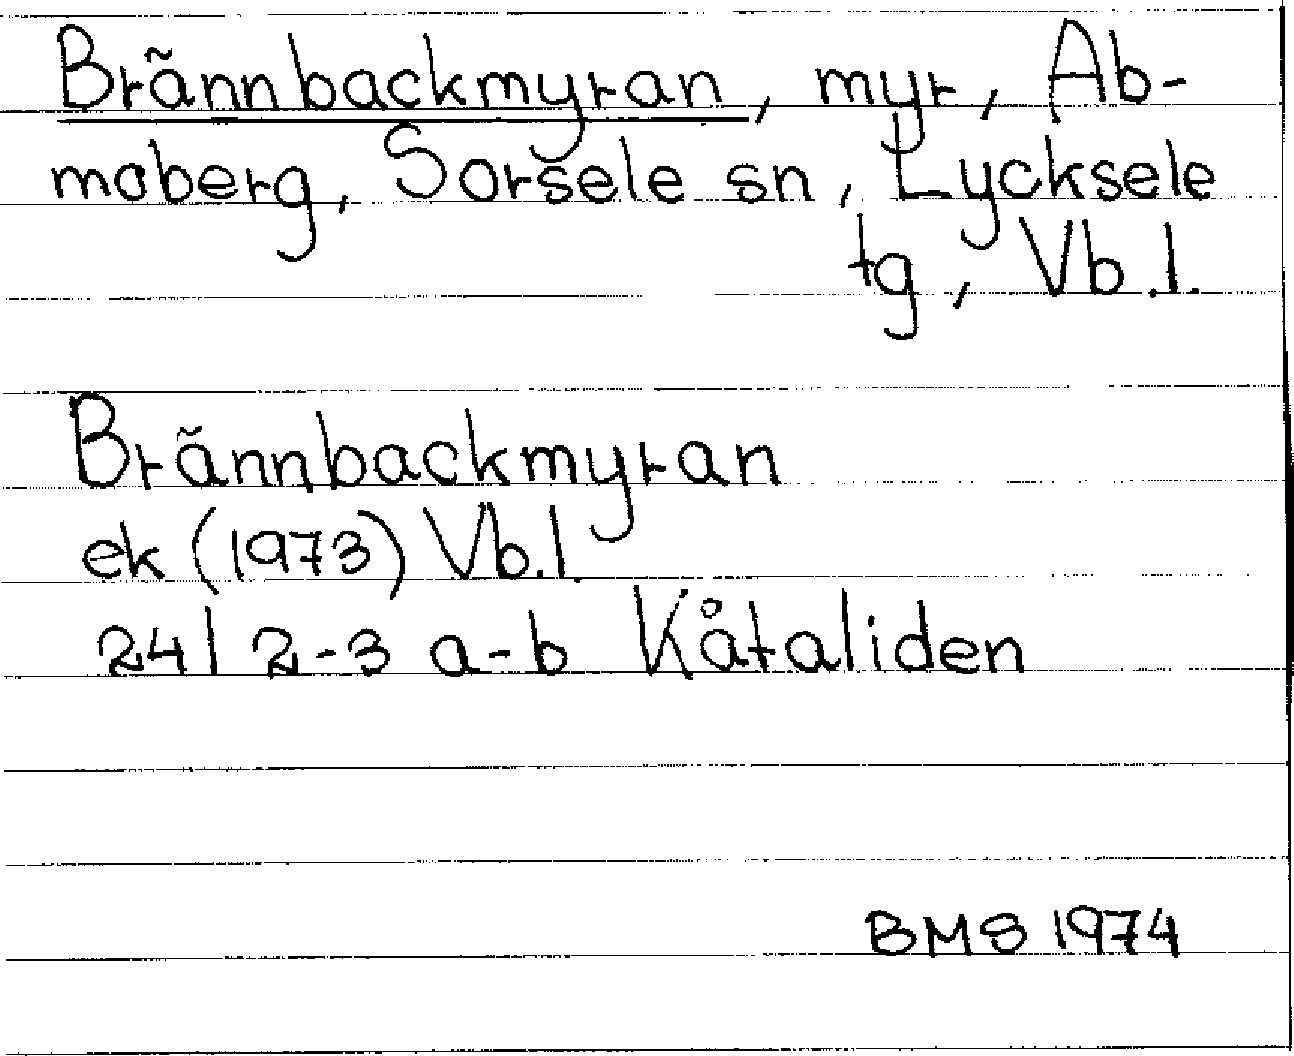 Brännbackmyran, myr, Ab-
moberg, Sorsele sn, Lycksele
tg, Vb.l.
Brännbackmyran
ek (1973) Vb.l.
24I 2-3 a-b Kåtaliden
BMS 1974